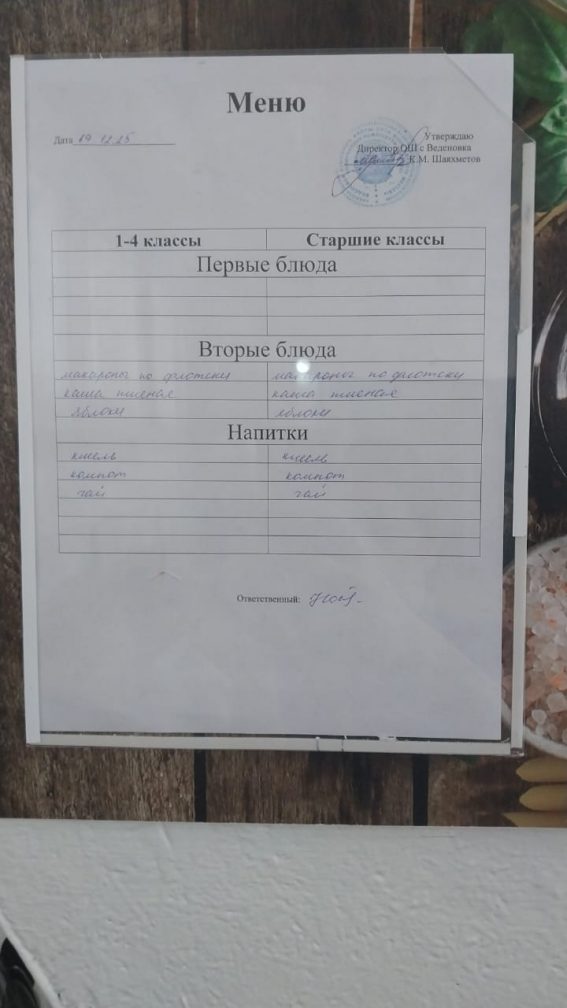 Меню
Дата 09.12.25
Утверждаю
Директор ОШ с Веденовка
К.М. Шаяхметов
1-4 классы Старшие классы
Первые блюда
Вторые блюда
макароны по флотски макароны по флотски
каша пшеная каша пшеная
яблоки яблоки
Напитки
кисель кисель
компот компот
чай чай
Ответственный: